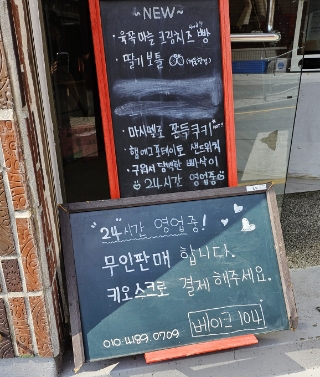 ~NEW~
· 육쪽마늘 크림치즈 빵
· 딸기 보틀
· 마시멜로 쫀득쿠키
· 햄에그포테이토 샌드위치
· 구워서 담백한 빠삭이
24시간 영업중
"24"시간 영업중!
무인판매 합니다.
키오스크로 결제 해주세요.
베이크 104
010.4189.0709